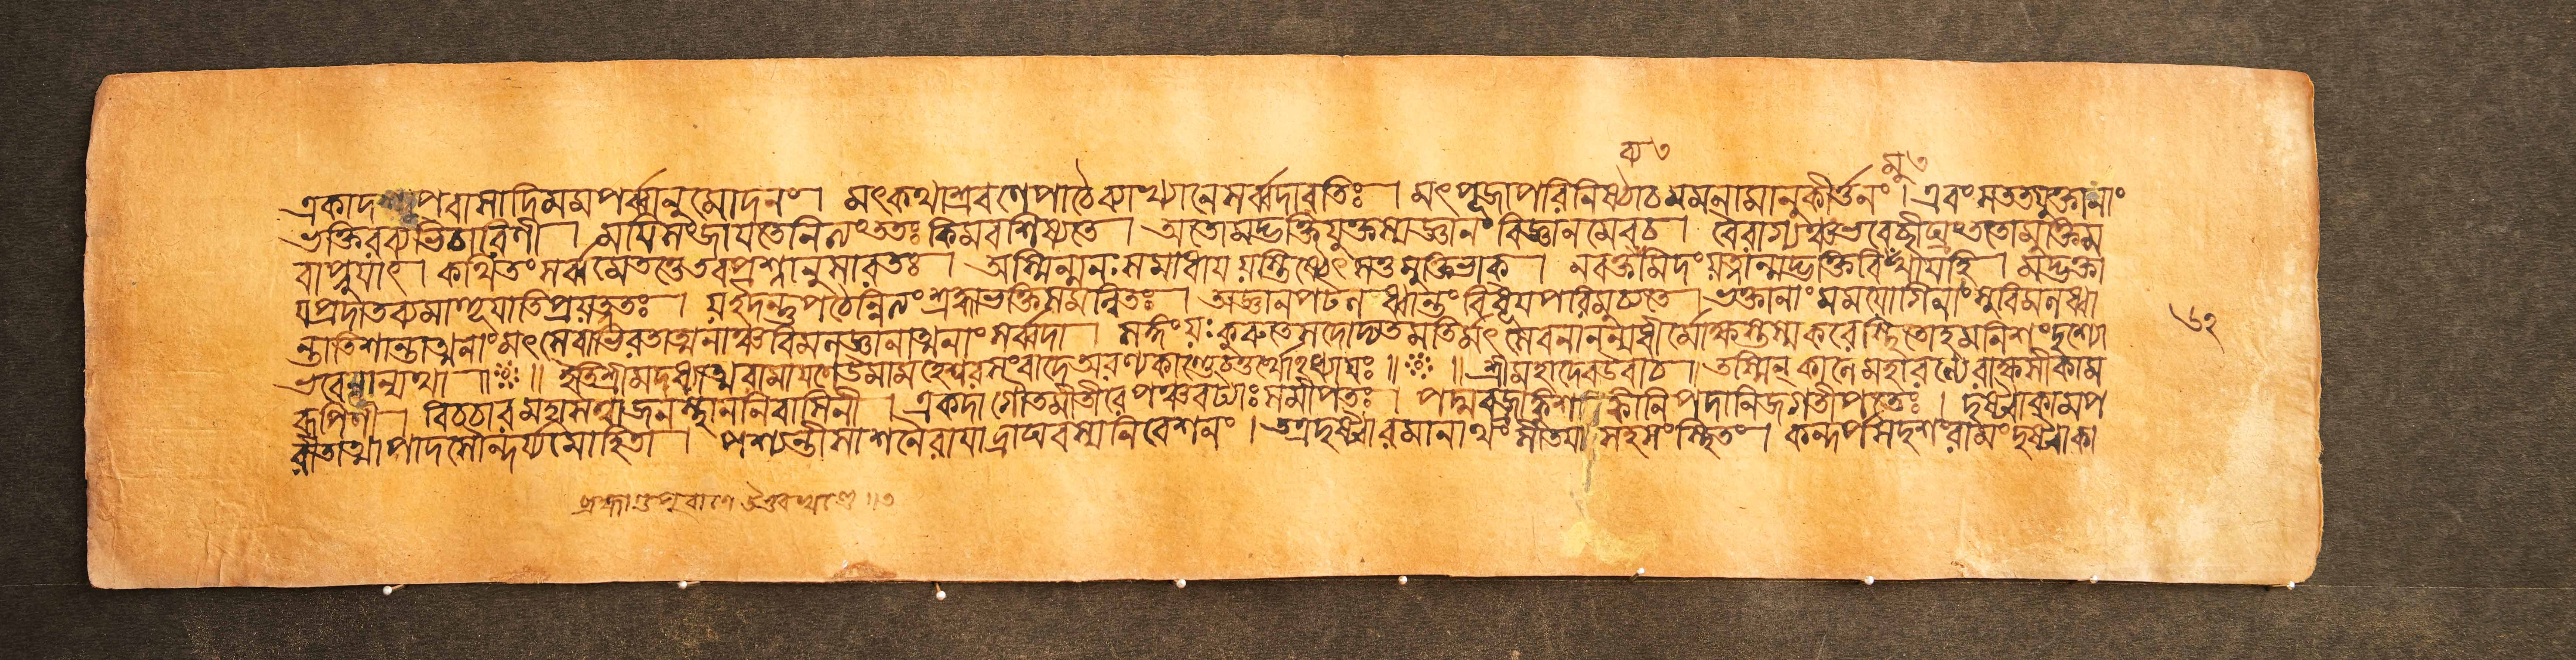 একাদশ্যুপবাসাদিমমপর্ব্বানুমোদনং। মৎকথাশ্রবণেপাঠেব্যাখ্যানেসর্ব্বদারতিঃ। মৎপূজাপরিনিষ্ঠাচমমনামানুকীর্ত্তনং। এবংসততযুক্তানাং
ভক্তিরব্যভিচারিণী। ময়িসংজায়তেনিত্যংততঃকিমবশিষ্যতে। অতোমদ্ভক্তিযুক্তস্যজ্ঞানংবিজ্ঞানমেবচ। বৈরাগ্যঞ্চভবেচ্ছীঘ্রংততোমুক্তিম
বাপ্নুয়াৎ। কথিতংসর্ব্বমেতত্তেতবপ্রশ্নানুসারতঃ। অস্মিন্মনঃসমাধায়যস্তিষ্ঠেৎসতুমুক্তিভাক্। নবক্তমিদংযত্নান্মদ্ভক্তিবিমুখায়হি। মদ্ভক্তা
য়প্রদাতব্যমাহূয়াতিপ্রযত্নতঃ। যইদন্তুপঠেন্নিত্যংশ্রদ্ধাভক্তিসমন্বিতঃ। অজ্ঞানপটলধ্বান্তংবিধূয়পরিমুচ্যতে। ভক্তানাংমমযোগিনাংসুবিমলস্বা
ন্তাতিশান্তাত্মনাংমৎসেবাভিরতাত্মনাঞ্চবিমলজ্ঞানাত্মনাংসর্ব্বদা। সঙ্গংযঃকুরুতেসদোদ্যতমতির্মৎসেবনানন্যধীর্মোক্ষস্তস্যকরেস্থিতোহমনিশংদৃশ্যো
ভবেন্নান্যথা॥ ॥ইতিশ্রীমদধ্যাত্মরামায়ণেউমামহেশ্বরসংবাদেঅরণ্যকাণ্ডেচতুর্থোঽধ্যায়ঃ॥ ॥শ্রীমহাদেবউবাচ॥ তস্মিন্কালেমহারণ্যেরাক্ষসীকাম
রূপিণী। বিচচারমহাসত্ত্বাজনস্থাননিবাসিনী। একদাগৌতমীতীরেপঞ্চবট্যাঃসমীপতঃ। পদ্মবজ্রাঙ্কুশাঙ্কানিপদানিজগতীপতেঃ। দৃষ্ট্বাকামপ
রীতাত্মাপাদসৌন্দর্য্যমোহিতা। পশ্যন্তীসাশনৈরায়াদ্রাঘবস্যনিবেশনং। তত্রদৃষ্ট্বারমানাথংসীতয়াসহসংস্থিতং। কন্দর্পসদৃশংরামংদৃষ্ট্বাকা
ব্য ৩
মু ৩
৬২